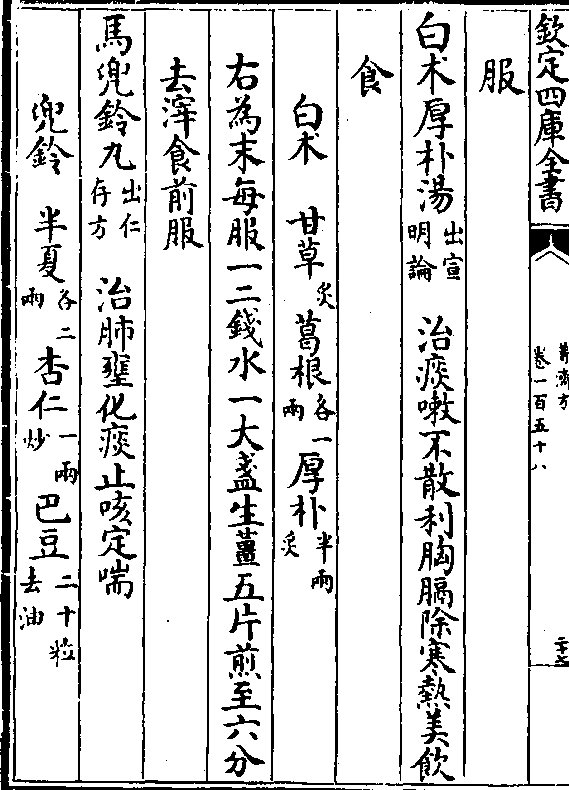 欽定四庫全書
普濟方
卷一百五十八
服
白朮厚朴湯出宣明論 治痰嗽不散利胸膈除寒熱美飲
食
白朮 甘草炙 葛根各一兩 厚朴半兩炙
右為末每服一二錢水一大盞生薑五片煎至六分
去滓食前服
馬兜鈴丸出仁存方 治肺壅化痰止咳定喘
兜鈴 半夏各二兩 杏仁一兩炒 巴豆二十粒去油